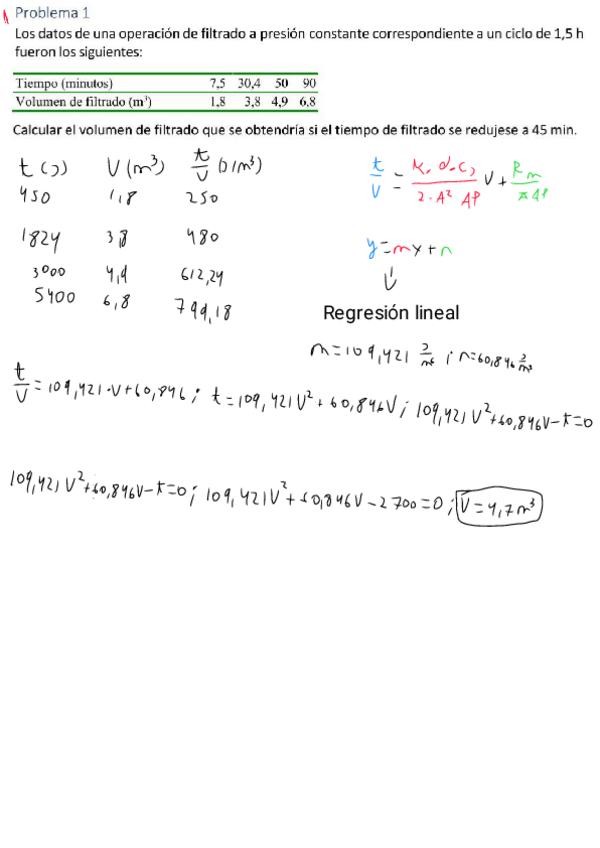 Problema 1
Los datos de una operación de filtrado a presión constante correspondiente a un ciclo de 1,5 h
fueron los siguientes:
Tiempo (minutos) 7,5 30,4 50 90
Volumen de filtrado (m³) 1,8 3,8 4,9 6,8
Calcular el volumen de filtrado que se obtendría si el tiempo de filtrado se redujese a 45 min.
t (s) V (m³) t/V (s/m³)
450 1,8 250
1824 3,8 480
3000 4,9 612,24
5400 6,8 794,18
t/V = K·α·Cs/2·A² ΔP V + Rm/A ΔP
y = mx + n
↓
Regresión lineal
m = 109,421 s/m⁶ ; n = 60,846 s/m³
t/V = 109,421·V + 60,846 ; t = 109,421V² + 60,846V ; 109,421V² + 60,846V - t = 0
109,421V² + 60,846V - t = 0 ; 109,421V² + 60,846V - 2700 = 0 ; V = 4,7 m³